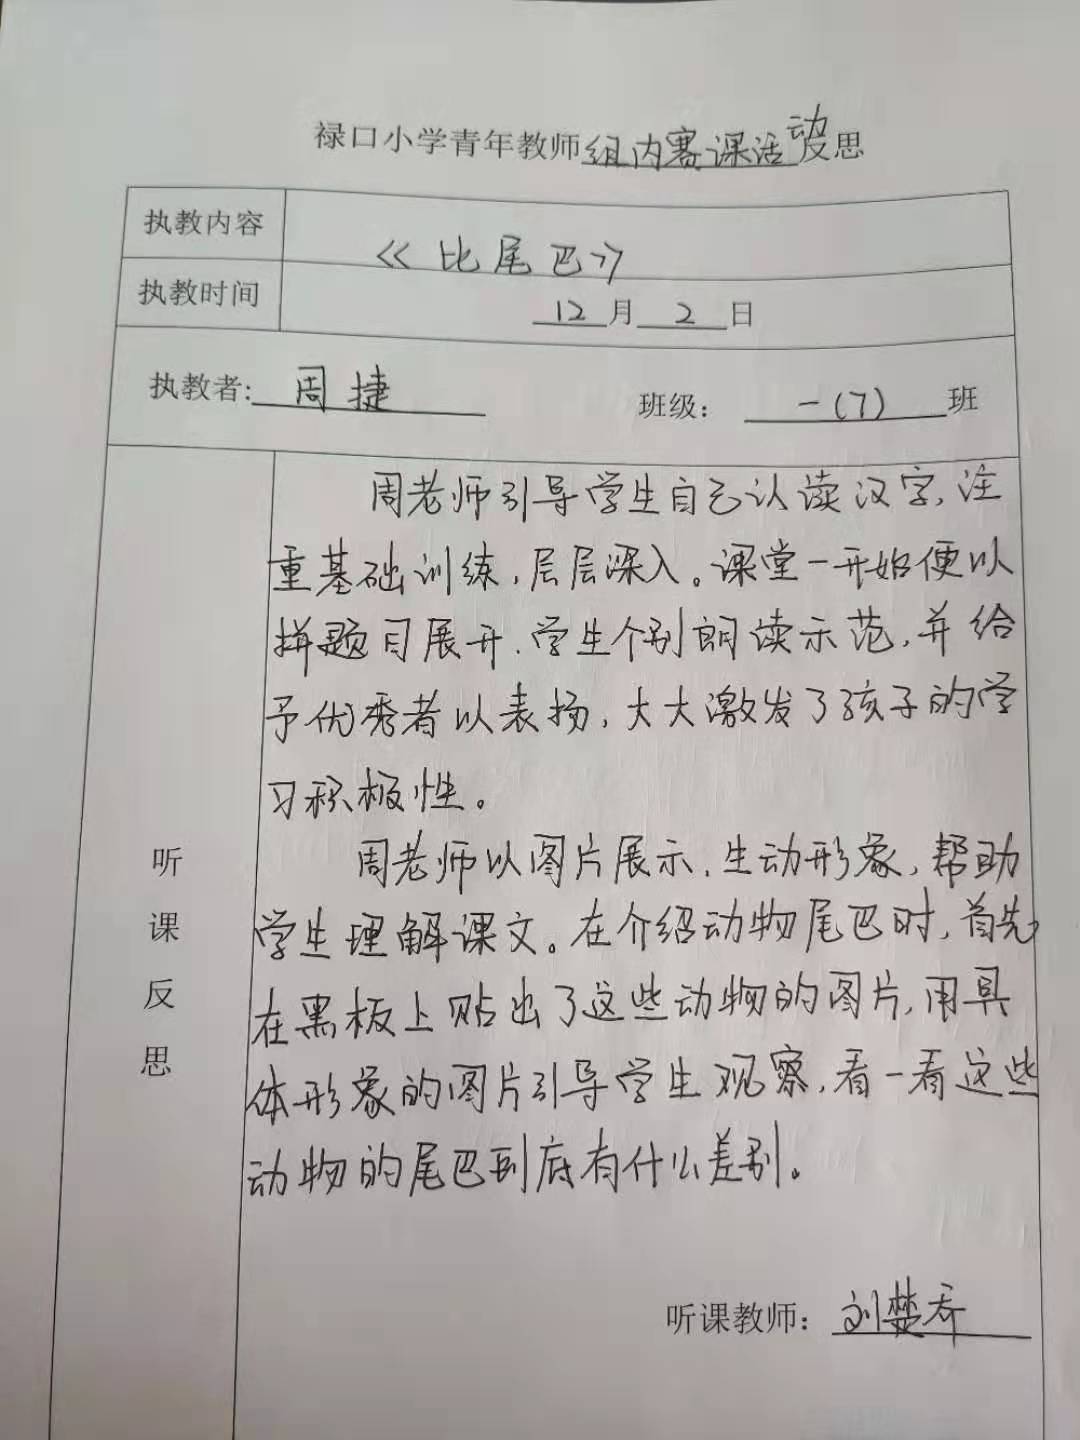 禄口小学青年教师组内赛课活动反思
执教内容 《比尾巴》
执教时间 12月2日
执教者:周捷 班级：一(7)班
周老师引导学生自己认读汉字,注
重基础训练,层层深入。课堂一开始便以
拼题目展开.学生个别朗读示范,并给
予优秀者以表扬,大大激发了孩子的学
习积极性。
听课反思
周老师以图片展示.生动形象,帮助
学生理解课文。在介绍动物尾巴时,首先
在黑板上贴出了这些动物的图片,用具
体形象的图片引导学生观察,看一看这些
动物的尾巴到底有什么差别。
听课教师：刘楚乔